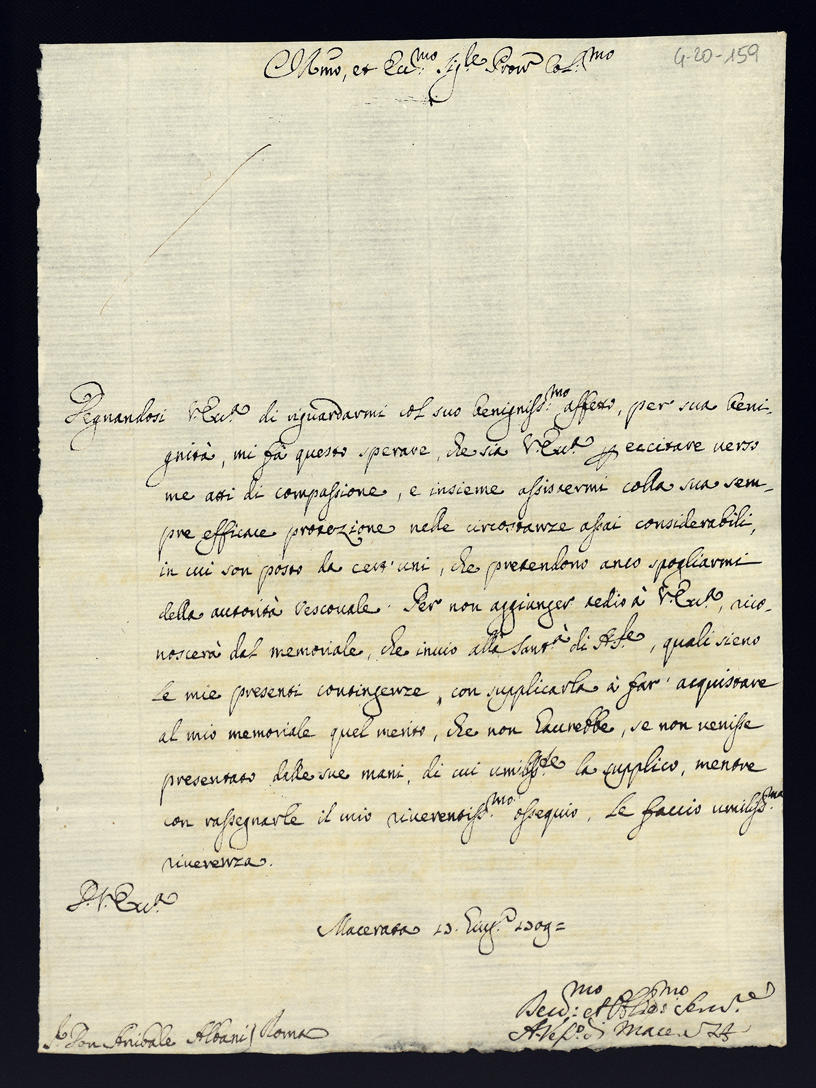 Illmo, et Ecc.mo Sig.re Pron Col.mo
4-20-159
Degnandosi V.Ecc.a di riguardarmi col suo benigniss.mo affetto, per sua beni-
gnità, mi fà questo sperare, che sia V.Ecc.a p eccitare verso
me atti di compassione, e insieme assistermi colla sua sem-
pre efficace protezione nelle circostanze assai considerabili,
in cui son posto da cert'uni, che pretendono anco spogliarmi
della autorità Vescovale. Per non aggiunger tedio à V.Ecc.a, rico-
noscerà dal memoriale, che invio alla Sant.à di, quali sieno
le mie presenti contingenze, con supplicarla à far' acquistare
al mio memoriale quel merito, che non haurebbe, se non venisse
presentato dalle sue mani, di cui umiliss.te la supplico, mentre
con rassegnarle il mio riverentiss.mo ossequio, le faccio umiliss.ma
riverenza.
D. V. Ecc.a
Macerata 13. 1709=
mo et mo
di Macer.
Don Anibale Albani / Roma